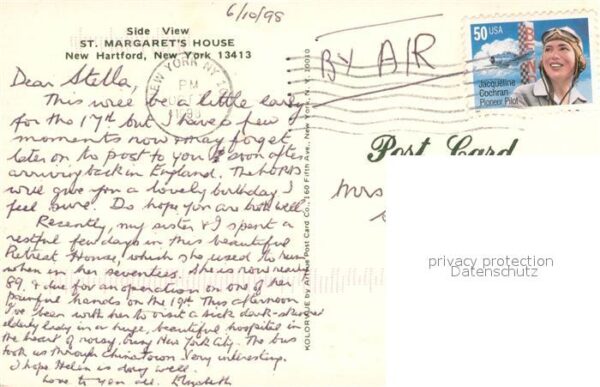 6/10/98
Side View
ST. MARGARET'S HOUSE
New Hartford, New York 13413
BY AIR
50 USA
Jacqueline
Cochran
Pioneer Pilot
NEW YORK NY
PM
Dear Stella,
This will be a little early
for the 17th but I have a few
moments now & may forget
later on to post to you soon after
arriving back in England. The
will give you a lovely birthday I
feel sure. Do hope you are both well.
Recently, my sister & I spent a
restful few days in this beautiful
Retreat House, which she used to run
when in her seventies. She is now nearly
89, & due for an operation on one of her
painful hands on the 19th. This afternoon
I've been with her to visit a sick dark-skinned
elderly lady in a huge, beautiful hospital in
the heart of noisy, busy New York City. The bus
took us through Chinatown. Very interesting.
I hope Helen is doing well.
Love to you all. Elizabeth
Post Card
Mrs
KOLORVUE by Artvue Post Card Co., 160 Fifth Ave., New York, N. Y. 10010
privacy protection
Datenschutz